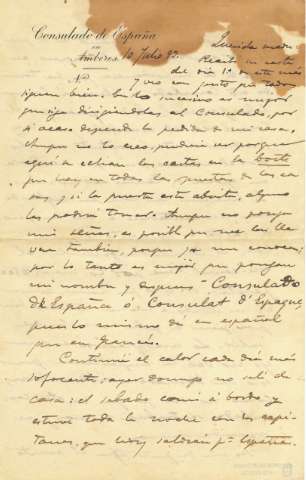 Consulado de España
en
Amberes 10 Julio 92.
Querida madre:
Recibí su carta
del día 1º de este mes
Nº 7 veo con gusto que todos
siguen bien. En lo sucesivo es mejor
que siga dirigiéndolas al Consulado, por
si acaso después la pérdida de mi casa.
Aunque no lo creo pudiera ser porque
aquí se echan las cartas en la boîte
que hay en todas las puertas de las ca-
sas y si la puerta está abierta, alguno
las podría tomar. Aunque no pongan
mis señas, es posible que me las lle-
van también, porque ya me conocen;
por lo tanto es mejor que pongan
mi nombre y después - Consulado
de España ó Consulat d'Espagne,
pues lo mismo dá en español
que en francés.
Continúa el calor cada día más
sofocante; ayer domingo no salí de
casa: el sábado comí á bordo, y
estuve toda la noche con los capi-
tanes, que hoy saldrán pª España.